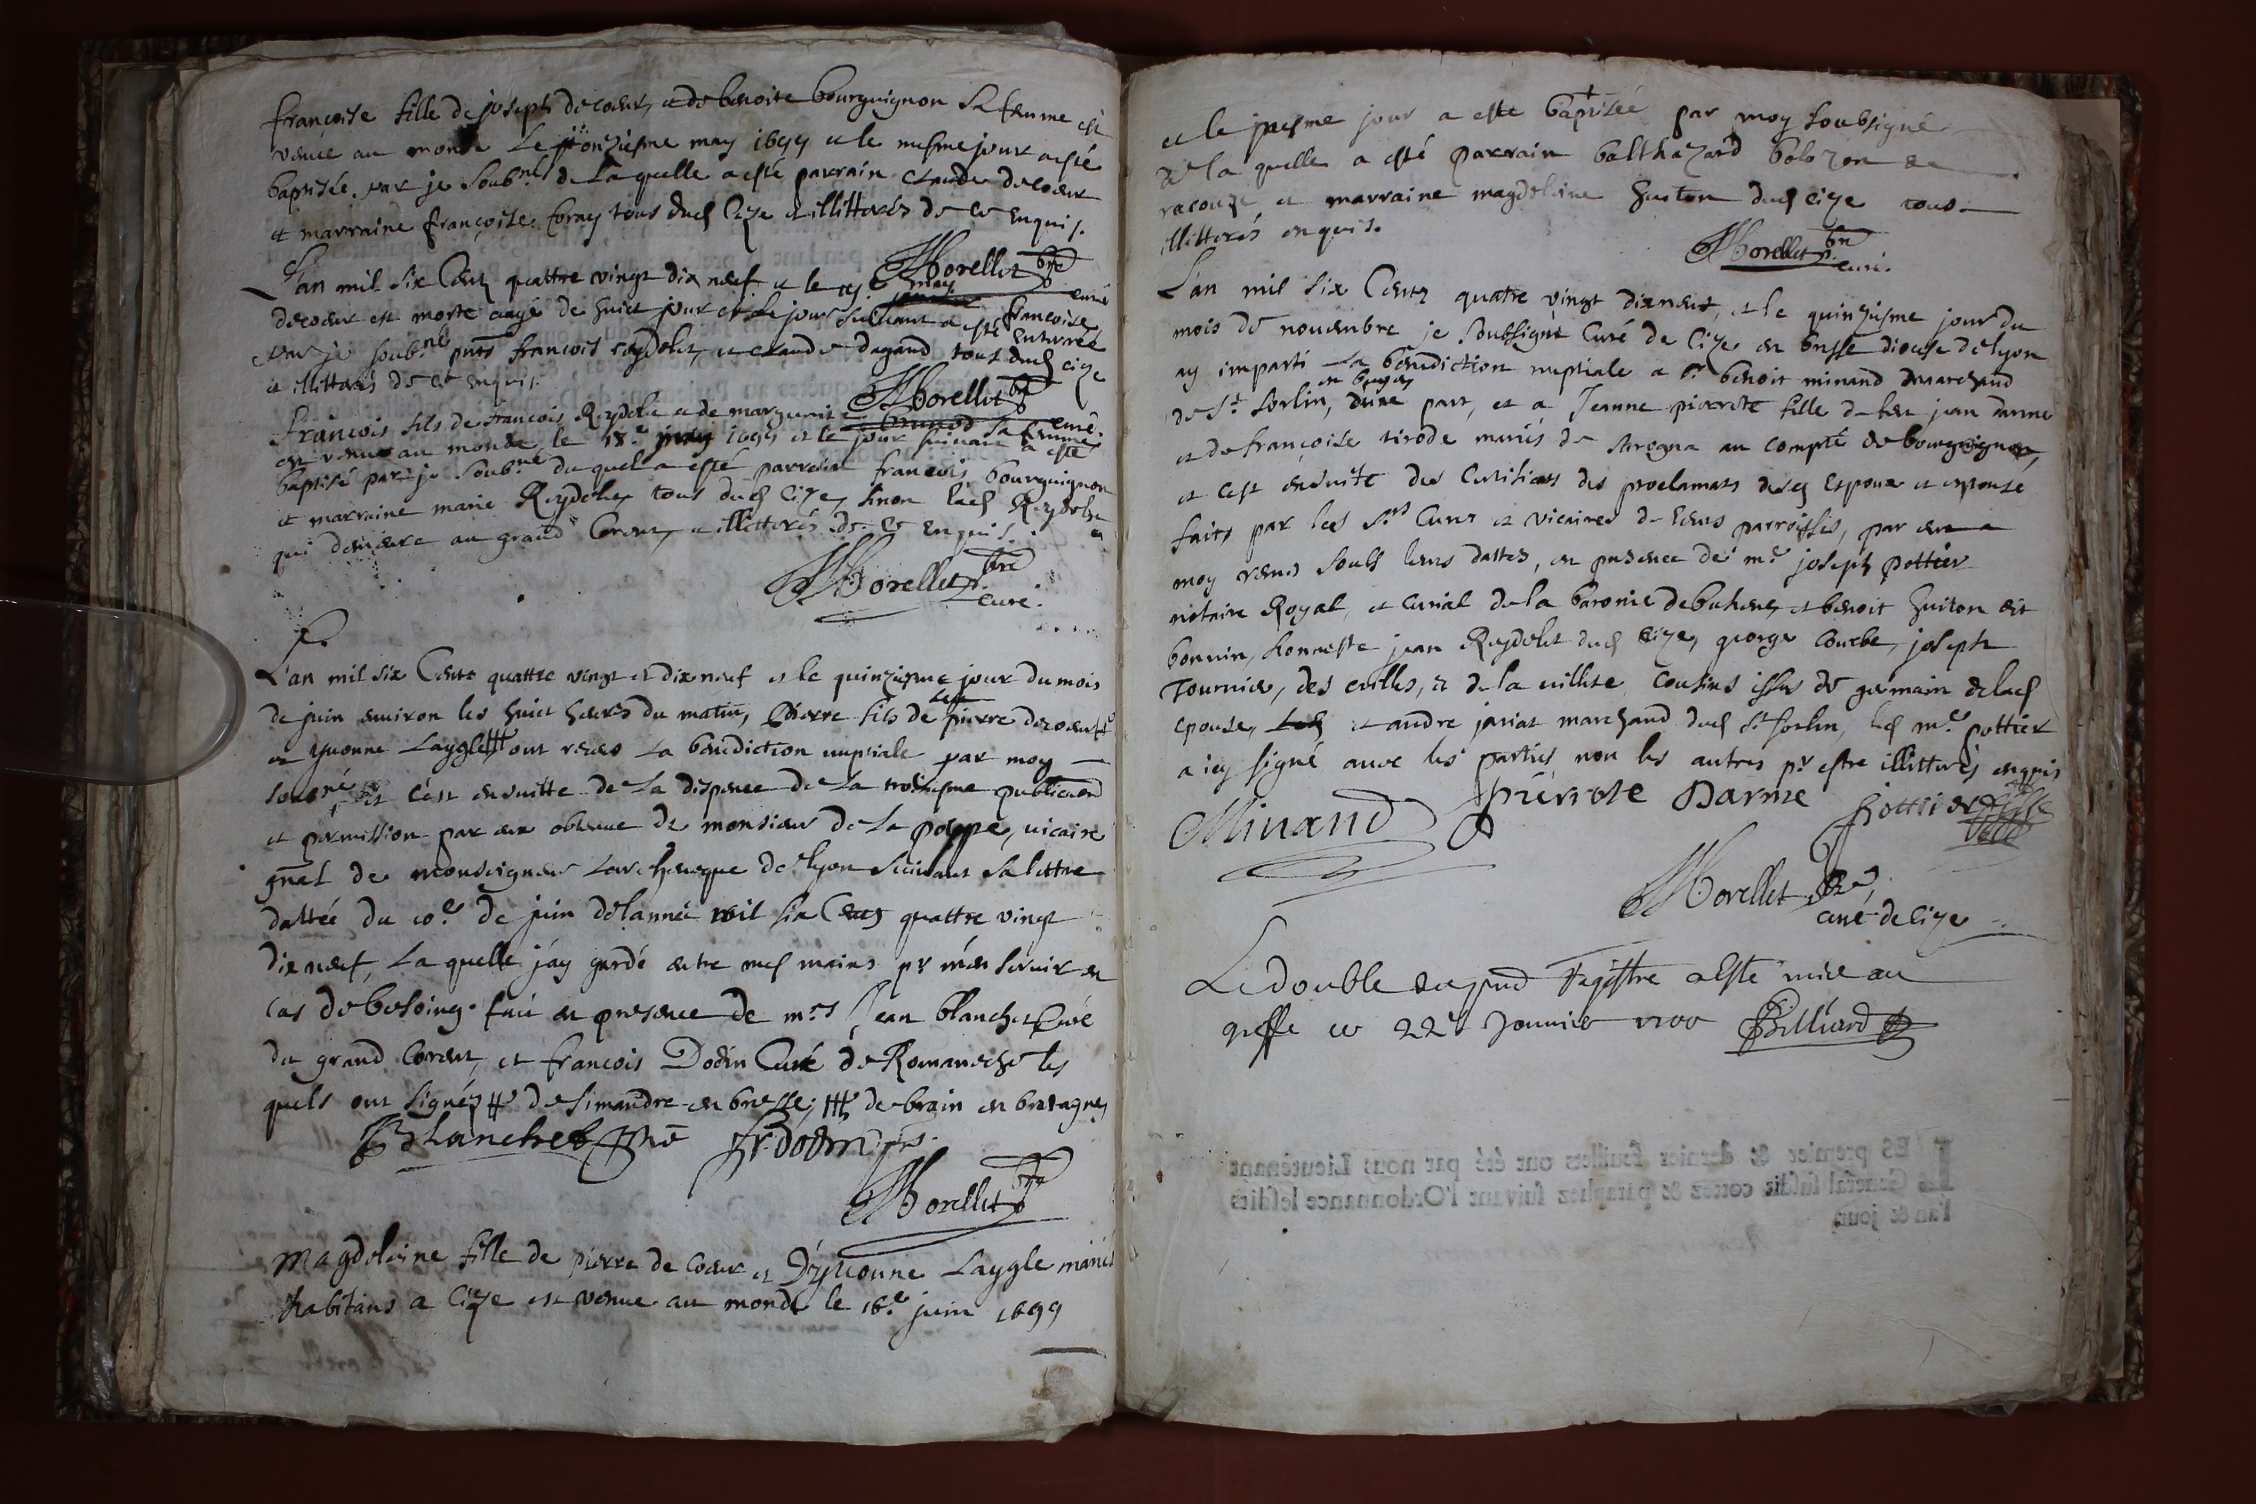 françoise fille de joseph decoeur, et de benoite bourguignon sa femme est
venue au monde le onziesme may 1699 et le mesme jour a esté
baptisée par je soubné de la quelle a esté parrain claude decoeur
et marraine françoise tous dud Cize et illitterés de ce enquis.
Morellet pbre
curé
L'an mil six Centz quattre vingt dix neuf et le may françoise
decoeur est morte aagé de huict jour et le jour suivant a esté enterrée
par je soubné pnts françois reydelet, et claude dagand tous dud cize
et illitterés de ce enquis.
Morellet pbre
curé.
François fils de francois Reydelet et de marguerite brunod sa femme
est venu au monde le 18e 1699 et le jour suivant a esté
baptisé par je soubné du quel a esté parrain francois bourguignon
et marraine marie Reydelet tous dud Cize, sinon lad Reydelet
qui demeure au grand Corent, et illitterés de ce enquis.
Morellet pbre
curé.
L'an mil six Cents quattre vingt et dix neuf et le quinziesme jour du mois
de juin environ les huict heures du matin, Pierre fils de feu pierre decoeur
et yvonne Laygle ont receu la benediction nuptiale par moy
soubné, et c'est ensuitte de la dispence de la troisiesme publication
et permission par eux obtenue de monsieur de la poype, vicaire
gnel de monseigneur Larchevesque de lyon suivant sa lettre
dattée du 10e de juin de lannée mil six Cents quattre vingt
dix neuf, La quelle j'ay gardé entre mes mains pr m'en servir en
cas de besoing. faict en presence de mrs Jean blanchet Curé
du grand Corent, et francois Dodin Curé de Romaneche les
quels ont signéz # de simandre en bresse, de brain en bretagne,
Blanchet pbre fr. Dodin
Morellet pbre
Magdelaine fille de pierre de Coeur et D'yvonne Laygle mariés
habitans a Cize est venue au monde le 16e juin 1699
et le mesme jour a esté baptisée par moy soubsigné
de la quelle a esté parrain balthazard bolozon de
racouze et marraine magdelaine huiton dud cize tous
illitterés enquis.
Morellet pbre
curé.
L'an mil six Centz quatre vingt dix neuf, et le quinziesme jour du
mois de novembre je soubsigné Curé de Cize en bresse diocese de lyon
ay imparti la benediction nuptiale a sr benoit minand marchand
de St Sorlin, en bugey d'une part, et a Jeanne pierrote fille de feu jean darme
et de françoise tirode mariés de arogna au compté de bourgogne,
et cest ensuite des Certificats des proclamats desd Espoux et espouse
faits par les Srs Curez et vicaires de leurs parroisses, par eux a
moy remis soubs leurs dattes, en presence de me joseph pottier
notaire Royal, et Curial de la baronie de buhenc, et benoit huiton dit
bonvin, honneste jean Reydelet dud cize, george Courbe, joseph
Tournier, des cuilles, et de la villete cousins issus de germain de lad
epouse, et andre janiat marchand dud St Sorlin, led me pottier
a icy signé avec les parties non les autres pr estre illitterés enquis
Minand pierrote Darme Pottier
Morellet pbre,
curé de Cize
Le double du pnd Registre a esté mis au
greffe ce 22e Janvier 1700 Billiard
LEs premier & dernier feuillets ont été par nous Lieutenant
General susdit cottez & paraphez suivant l'Ordonnance lesdits
l'an & jour